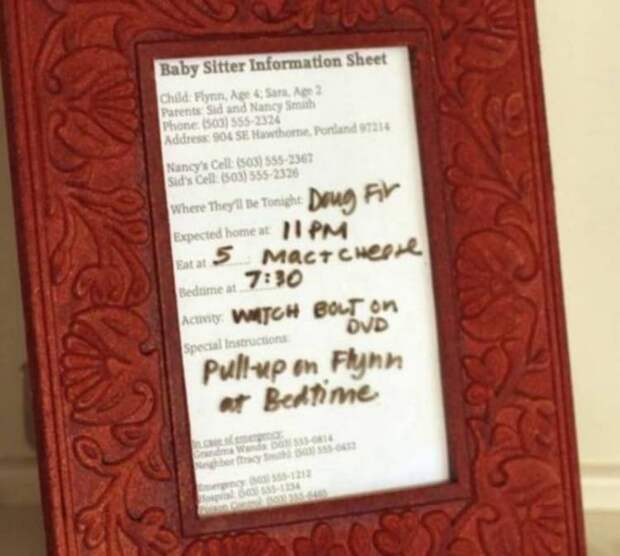 Baby Sitter Information Sheet
Child: Flynn, Age 4; Sara, Age 2
Parents: Sid and Nancy Smith
Phone: (503) 555-2324
Address: 904 SE Hawthorne, Portland 97214
Nancy's Cell: (503) 555-2367
Sid's Cell: (503) 555-2326
Where They'll Be Tonight: Doug Fir
Expected home at: 11 PM
Eat at 5 Mac + cheese
Bedtime at 7:30
Activity: WATCH BOLT on
DVD
Special Instructions:
Pull-up on Flynn
at Bedtime
In case of emergency:
Grandma Wanda: (503) 555-0814
Neighbor (Tracy Smith): (503) 555-0432
Emergency: (503) 555-1212
Hospital: (503) 555-1234
Poison Control: (503) 555-0465